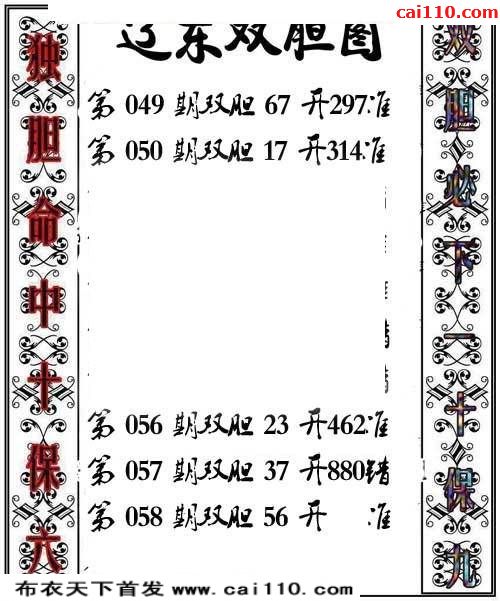 cai110.com
辽东双胆图
独胆命中十保六
双胆必下一十保九
第 049 期双胆 67 开297准
第 050 期双胆 17 开314准
第 056 期双胆 23 开462准
第 057 期双胆 37 开880错
第 058 期双胆 56 开 准
布衣天下首发 www.cai110.com